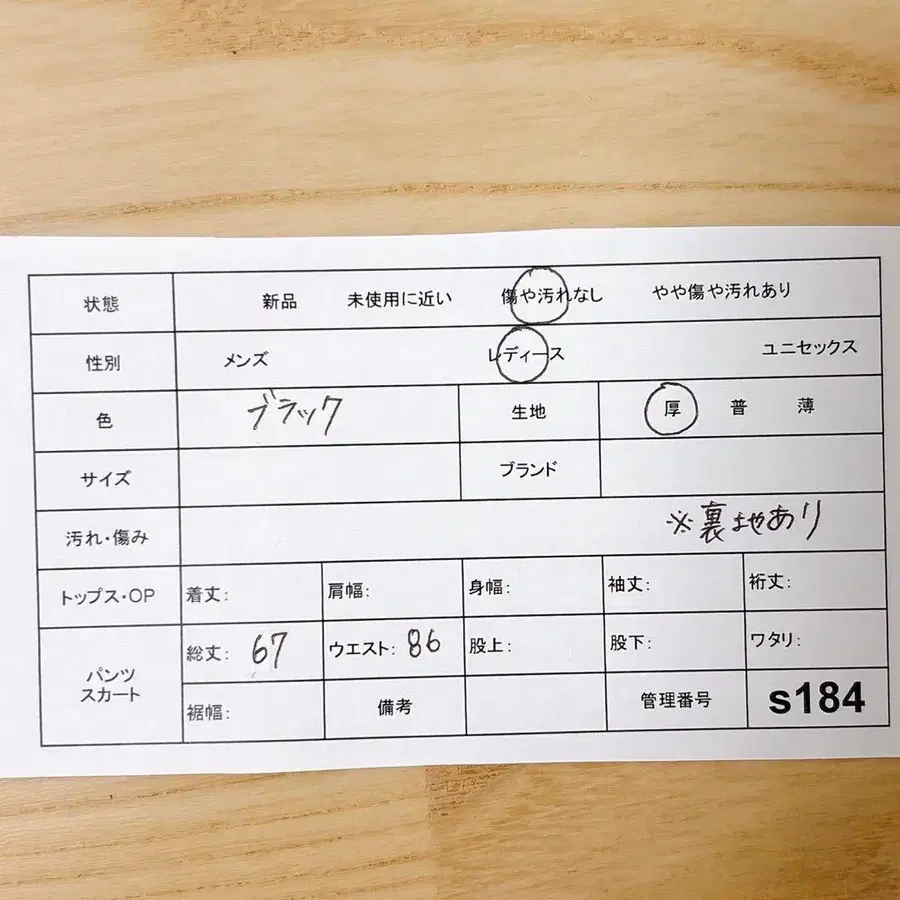 状態 新品 未使用に近い 傷や汚れなし やや傷や汚れあり
性別 メンズ レディース ユニセックス
色 ブラック 生地 厚 普 薄
サイズ ブランド
汚れ・傷み ※裏地あり
トップス・OP 着丈: 肩幅: 身幅: 袖丈: 裄丈:
パンツ スカート 総丈: 67 ウエスト: 86 股上: 股下: ワタリ:
裾幅: 備考 管理番号 s184